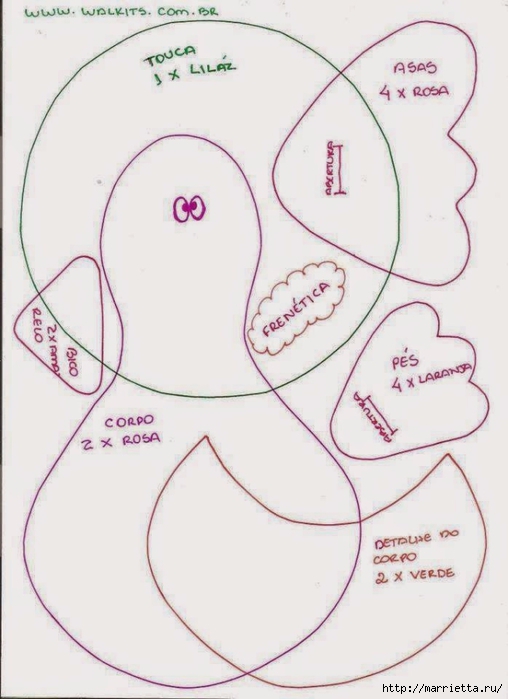 WWW.WALKITS.COM.BR
TOUCA
1 X LILÁZ
ASAS
4 X ROSA
ABERTURA
FRENÉTICA
BICO
2X AMA
RELO
PÉS
4 X LARANJA
ABERTURA
CORPO
2 X ROSA
DETALHE DO
CORPO
2 X VERDE
http://marrietta.ru/